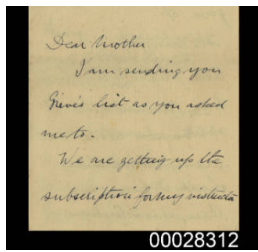 Dear Mother
I am sending you
Grieve's list as you asked
me to.
We are getting up the
subscription for my
00028312